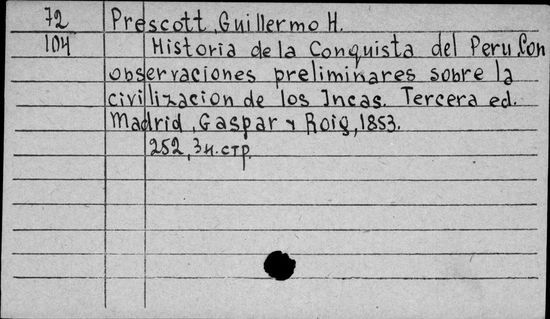 72 Prescott, Guillermo H.
104 Historia de la Conquista del Peru. Con
observaciones preliminares sobre la
civilizacion de los Incas. Tercera ed.
Madrid, Gaspar y Roig, 1853.
252, 3н. стр.